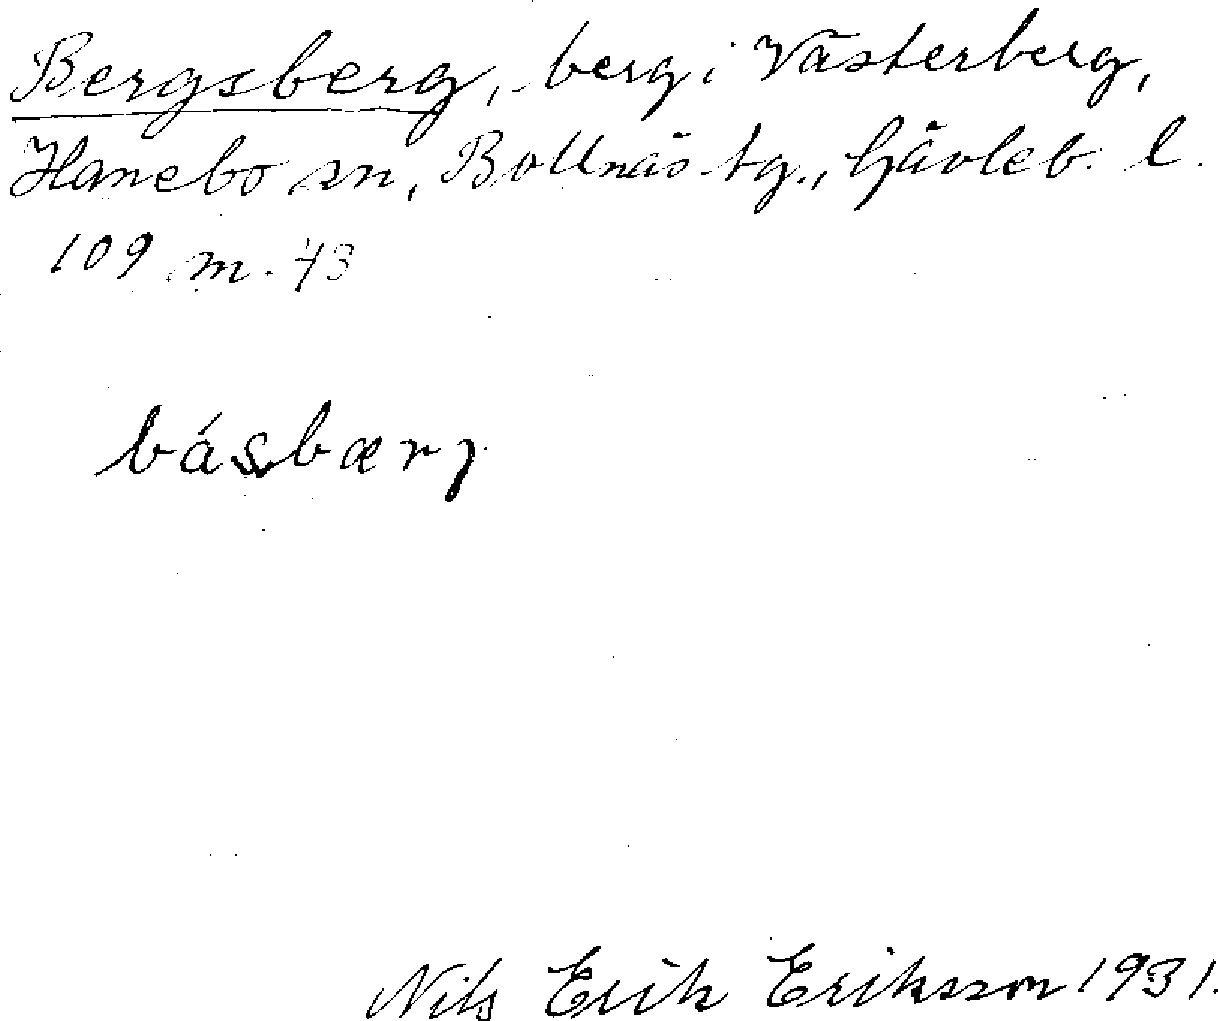 Bergsberg, berg i Västerberg,
Hanebo sn, Bollnäs tg., Gävleb. l.
109 m. 43
básbærj
Nils Erik Eriksson 1931.